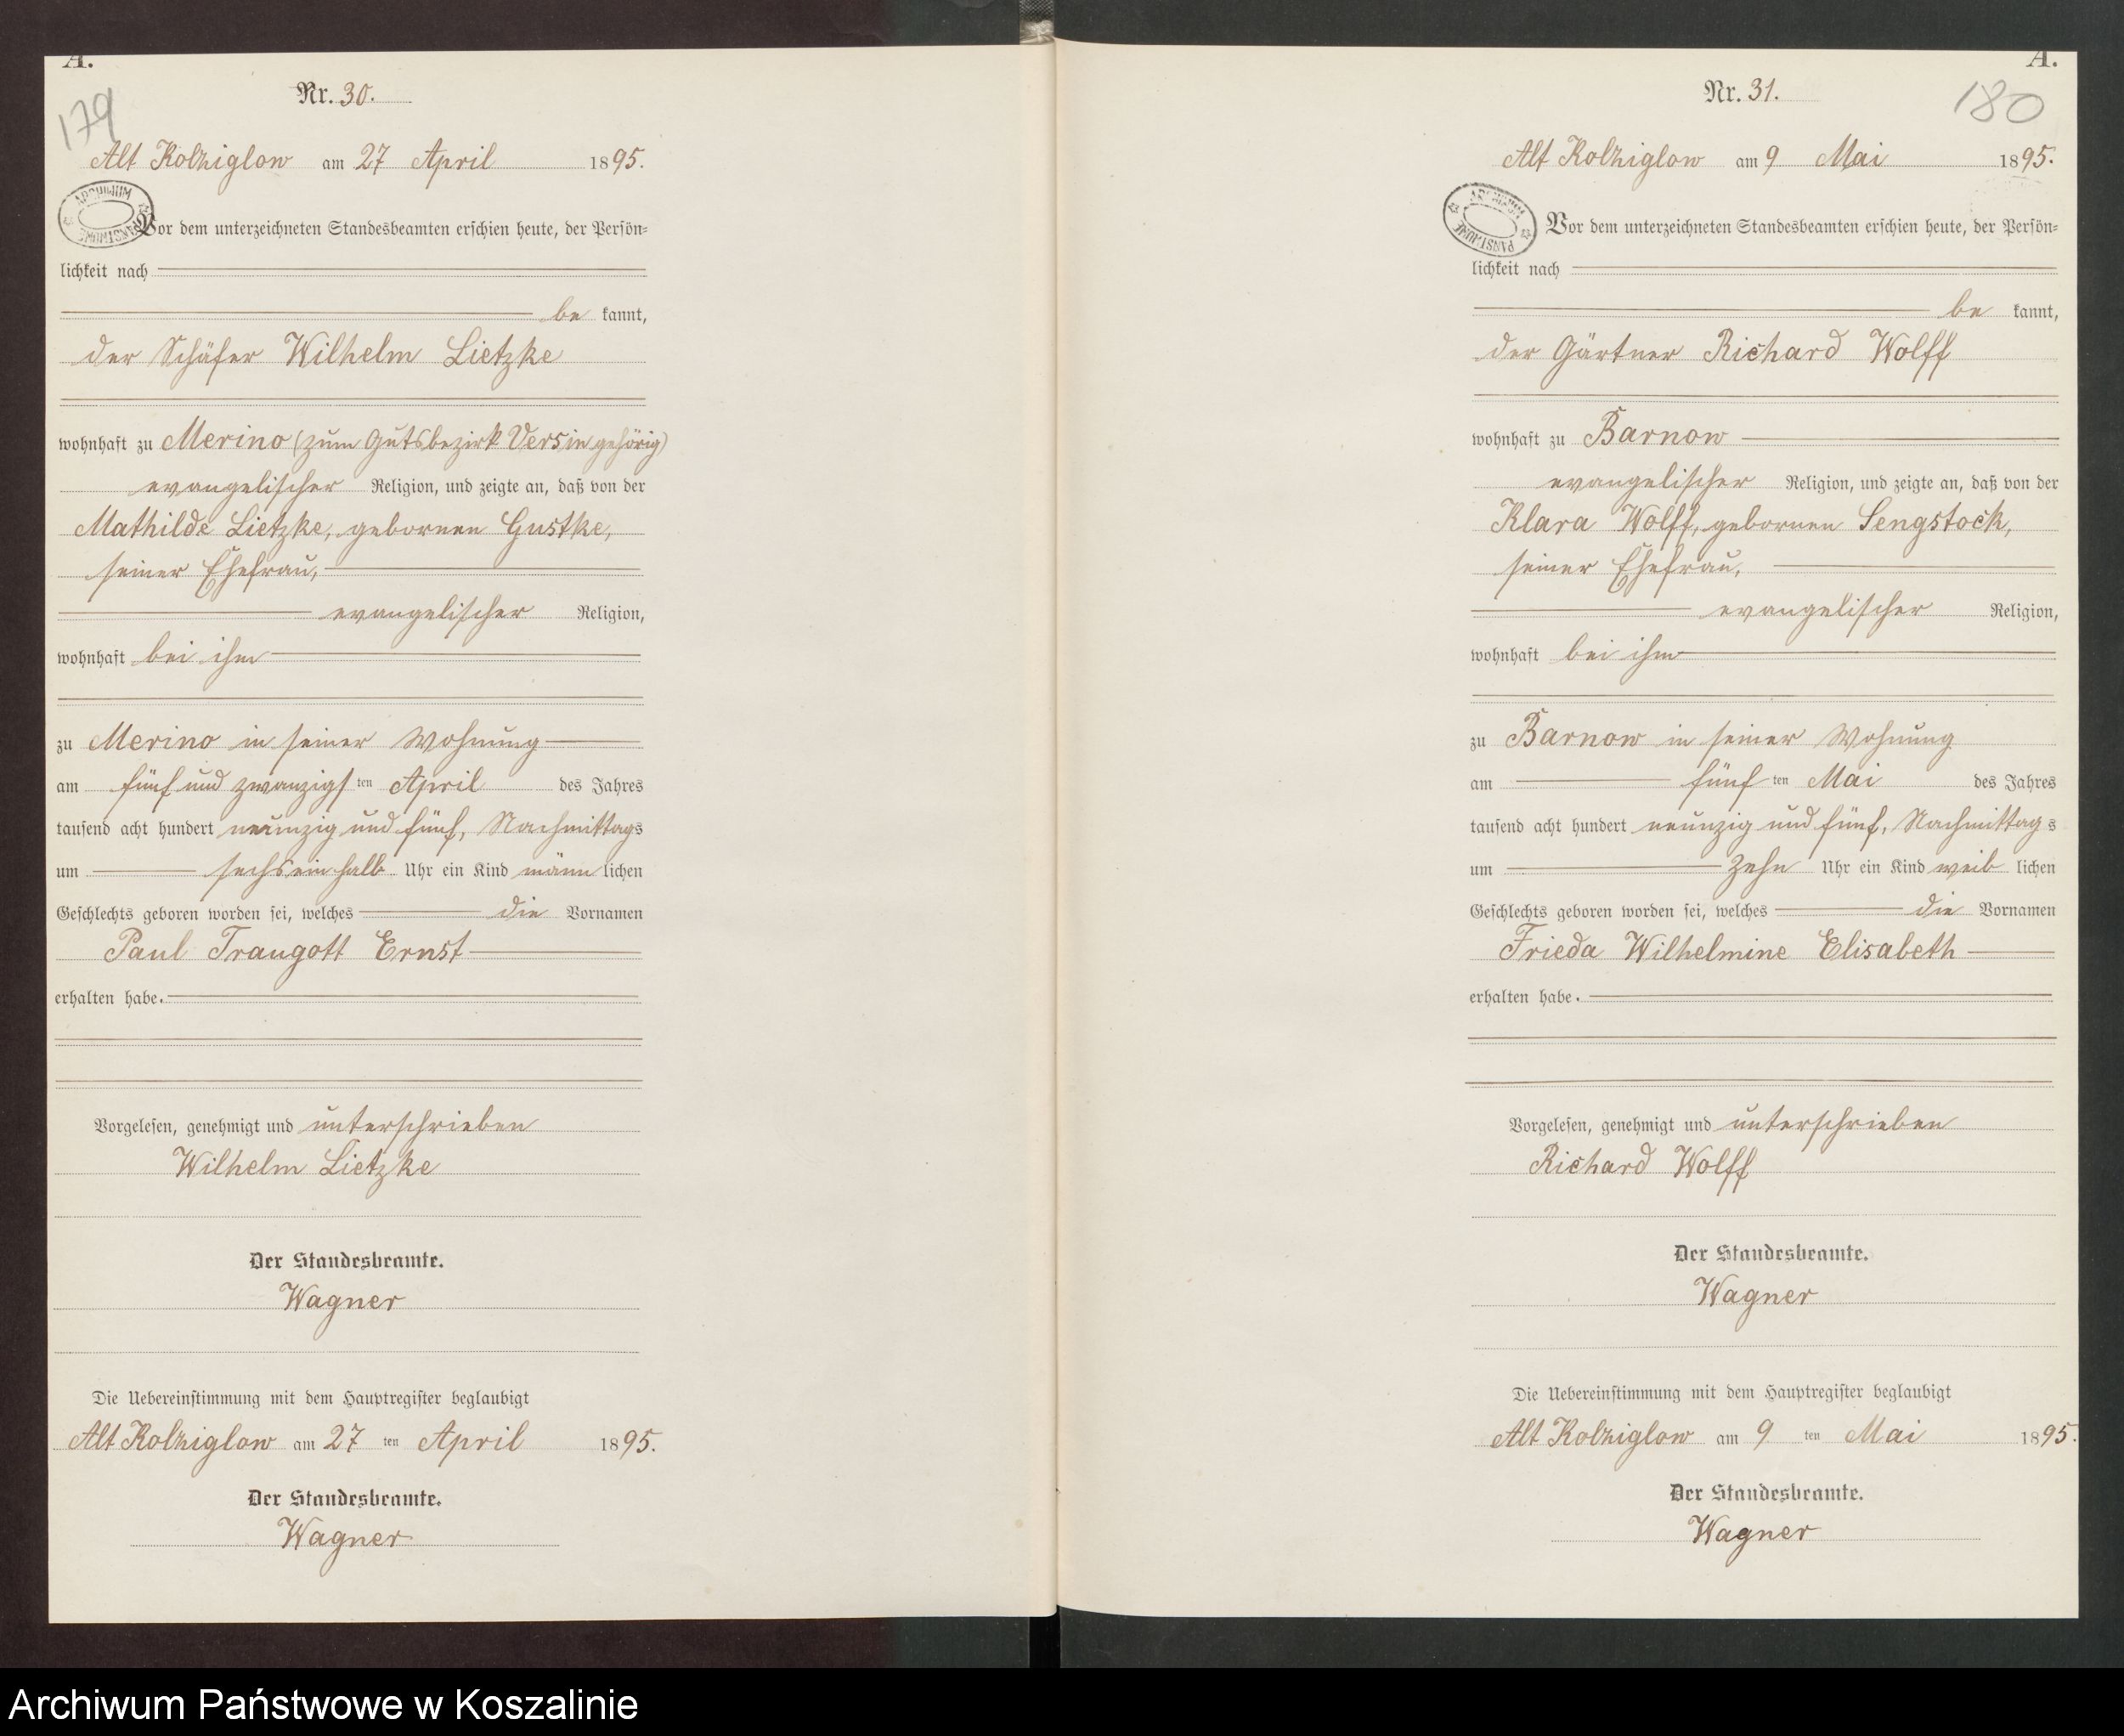 A.
179
Nr. 30.
Alt Kolziglow am 27 April 1895.
ARCHIWUM PAŃSTWOWE
Vor dem unterzeichneten Standesbeamten erschien heute, der Persön-
lichkeit nach
be kannt,
der Schäfer Wilhelm Lietzke
wohnhaft zu Merino (zum Gutsbezirk Versin gehörig)
evangelischer Religion, und zeigte an, daß von der
Mathilde Lietzke, gebornen Gustke,
seiner Ehefrau,
evangelischer Religion,
wohnhaft bei ihm
zu Merino in seiner Wohnung
am fünf und zwanzigsten April des Jahres
tausend acht hundert neunzig und fünf, Nachmittags
um sechs ein halb Uhr ein Kind männlichen
Geschlechts geboren worden sei, welches die Vornamen
Paul Traugott Ernst
erhalten habe.
Vorgelesen, genehmigt und unterschrieben
Wilhelm Lietzke
Der Standesbeamte.
Wagner
Die Uebereinstimmung mit dem Hauptregister beglaubigt
Alt Kolziglow am 27 ten April 1895.
Der Standesbeamte.
Wagner
A.
180
Nr. 31.
Alt Kolziglow am 9 Mai 1895.
ARCHIWUM PAŃSTWOWE
Vor dem unterzeichneten Standesbeamten erschien heute, der Persön-
lichkeit nach
be kannt,
der Gärtner Richard Wolff
wohnhaft zu Barnow
evangelischer Religion, und zeigte an, daß von der
Klara Wolff, gebornen Sengstock,
seiner Ehefrau,
evangelischer Religion,
wohnhaft bei ihm
zu Barnow in seiner Wohnung
am fünf ten Mai des Jahres
tausend acht hundert neunzig und fünf, Nachmittags
um zehn Uhr ein Kind weiblichen
Geschlechts geboren worden sei, welches die Vornamen
Frieda Wilhelmine Elisabeth
erhalten habe.
Vorgelesen, genehmigt und unterschrieben
Richard Wolff
Der Standesbeamte.
Wagner
Die Uebereinstimmung mit dem Hauptregister beglaubigt
Alt Kolziglow am 9 ten Mai 1895.
Der Standesbeamte.
Wagner
Archiwum Państwowe w Koszalinie